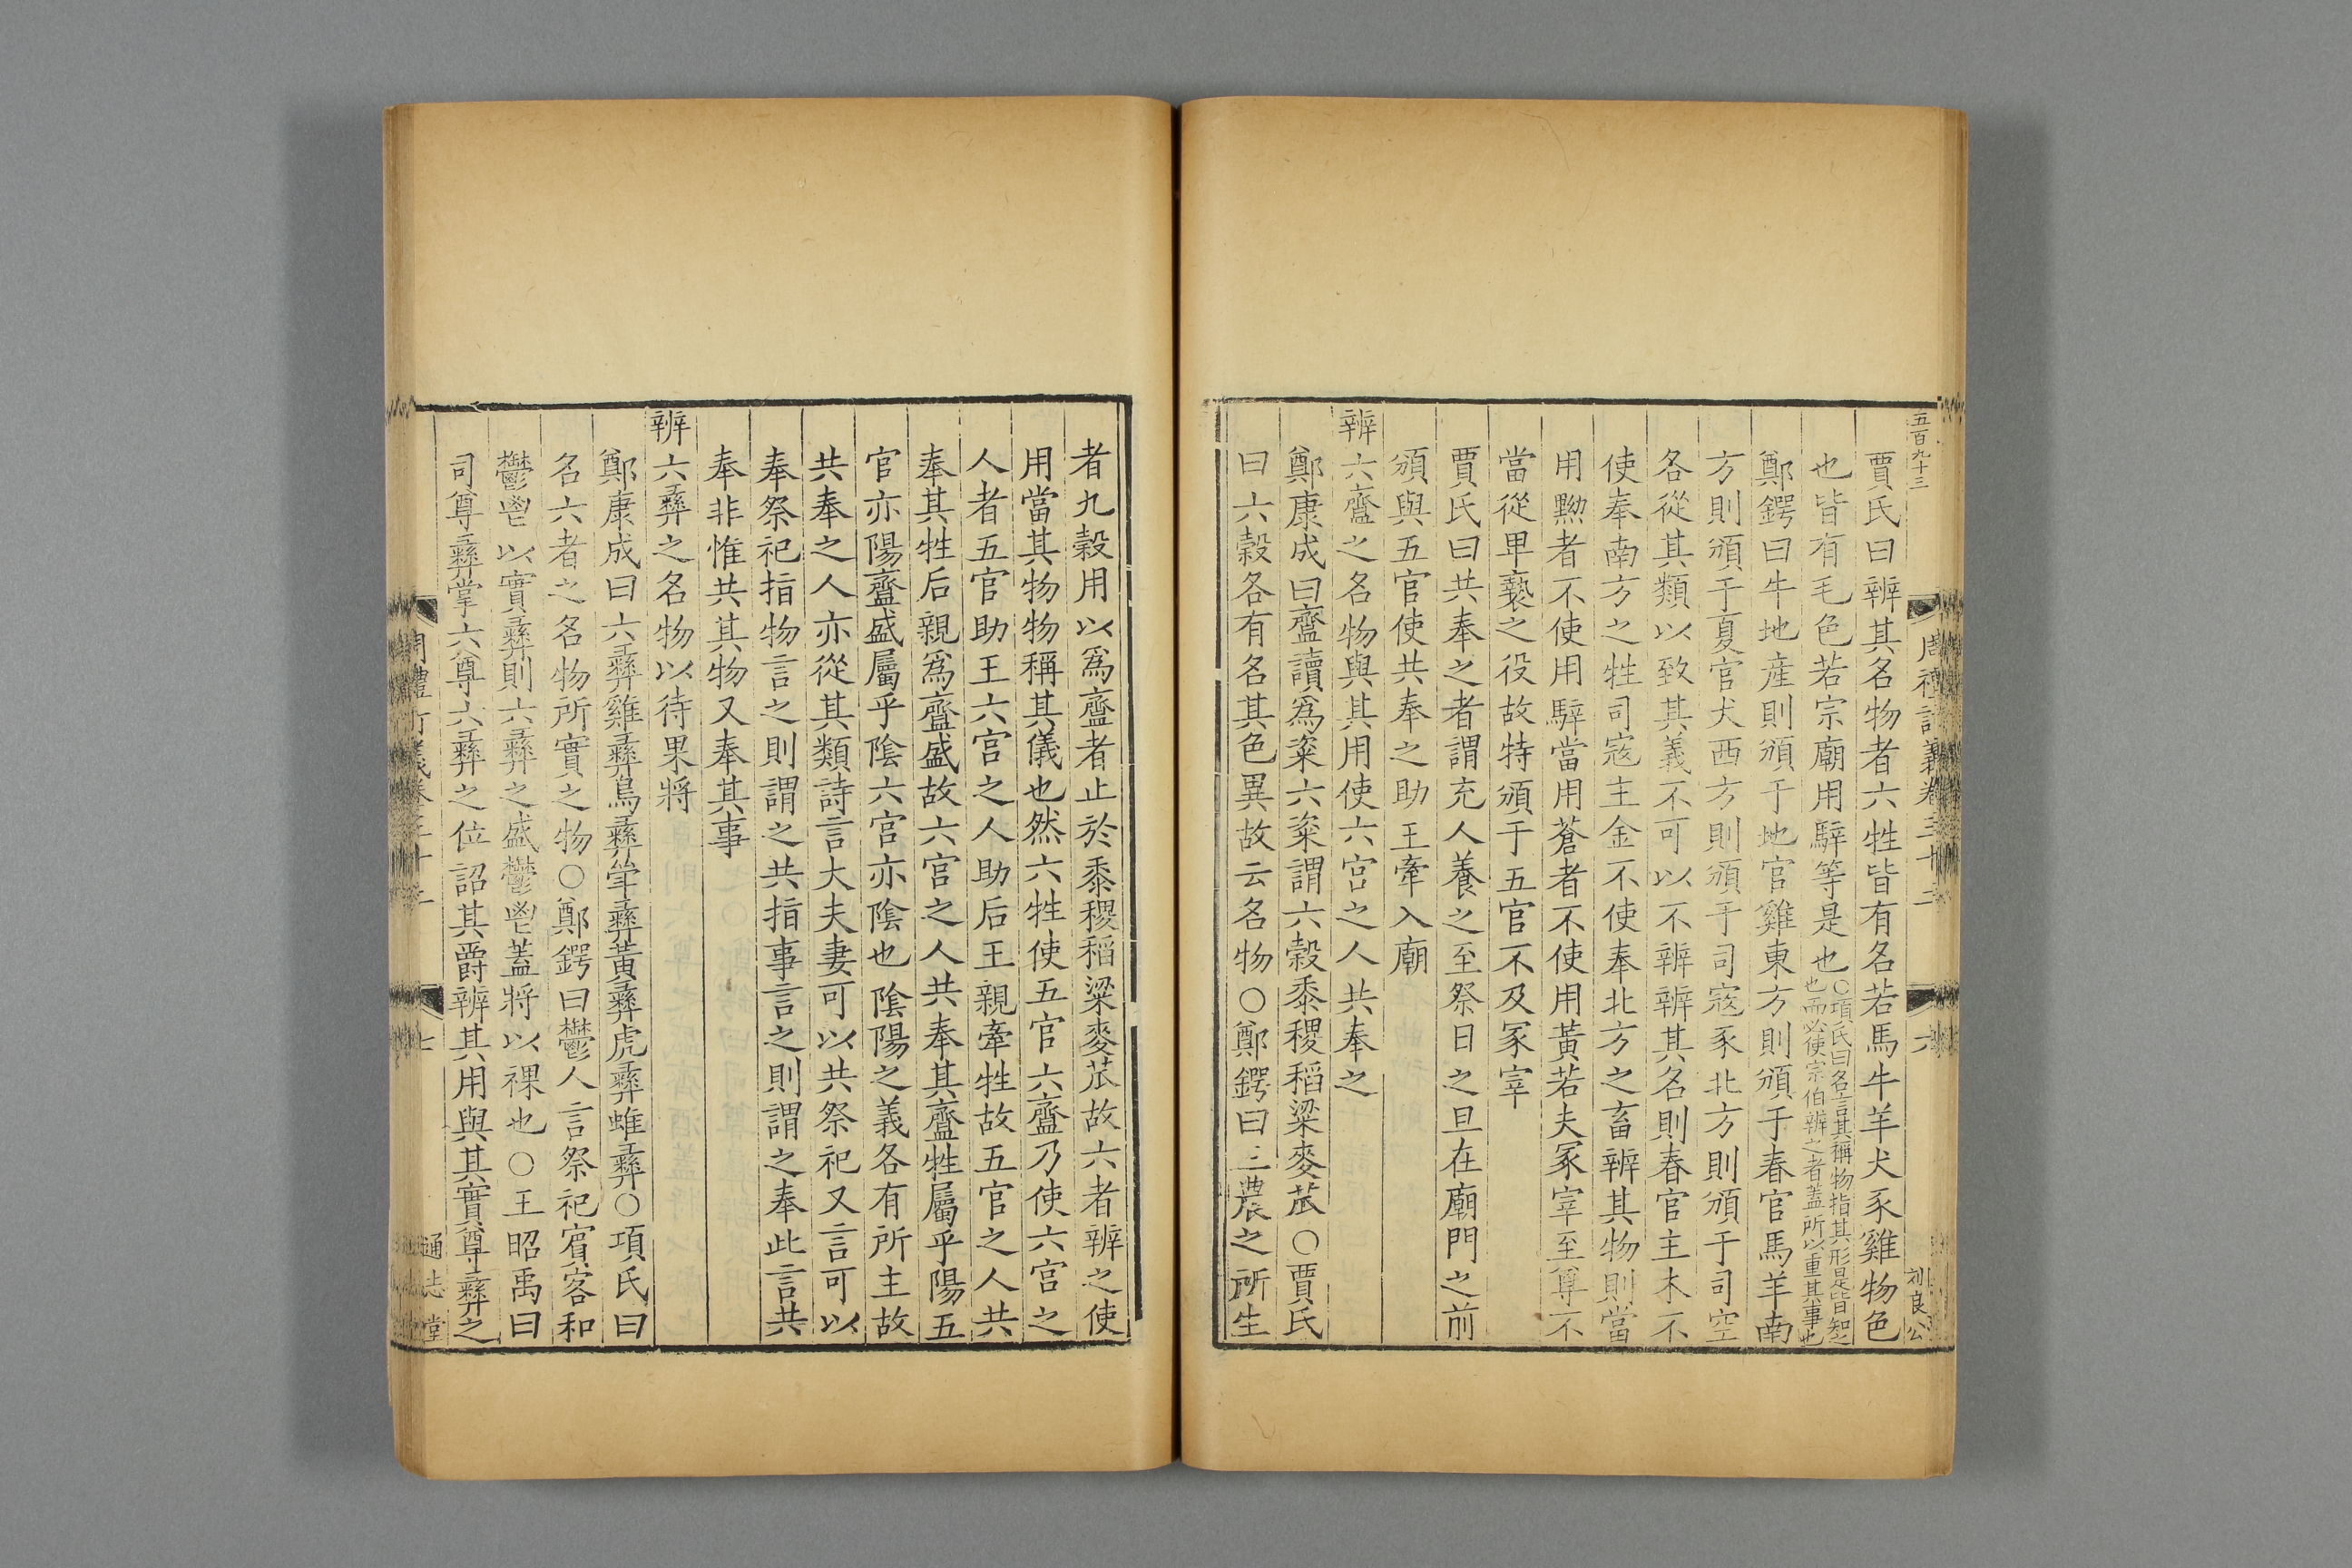 五百九十三
周禮訂義卷三十二
六
刘良公
賈氏曰辨其名物者六牲皆有名若馬牛羊犬豕雞物色
也皆有毛色若宗廟用騂等是也○項氏曰名言其稱物指其形是皆知之
也而必使宗伯辨之者蓋所以重其事也
鄭鍔曰牛地産則頒于地官雞東方則頒于春官馬羊南
方則頒于夏官犬西方則頒于司寇豕北方則頒于司空
各從其類以致其義不可以不辨辨其名則春官主木不
使奉南方之牲司寇主金不使奉北方之畜辨其物則當
用黝者不使用騂當用蒼者不使用黃若夫冢宰至尊不
當從卑褻之役故特頒于五官不及冢宰
賈氏曰共奉之者謂充人養之至祭日之旦在廟門之前
頒與五官使共奉之助王牽入廟
辨六齍之名物與其用使六宮之人共奉之
鄭康成曰齍讀爲粢六粢謂六穀黍稷稻粱麥苽○賈氏
曰六穀各有名其色異故云名物○鄭鍔曰三農之所生
者九穀用以爲齍者止於黍稷稻粱麥苽故六者辨之使
用當其物物稱其儀也然六牲使五官六齍乃使六宮之
人者五官助王六宮之人助后王親牽牲故五官之人共
奉其牲后親爲齍盛故六官之人共奉其齍牲屬乎陽五
官亦陽齍盛屬乎陰六宮亦陰也陰陽之義各有所主故
共奉之人亦從其類詩言大夫妻可以共祭祀又言可以
奉祭祀指物言之則謂之共指事言之則謂之奉此言共
奉非惟共其物又奉其事
辨六彝之名物以待果將
鄭康成曰六彝雞彝鳥彝斝彝黃彝虎彝蜼彝○項氏曰
名六者之名物所實之物○鄭鍔曰鬱人言祭祀賓客和
鬱鬯以實彝則六彝之盛鬱鬯蓋將以祼也○王昭禹曰
司尊彝掌六尊六彝之位詔其爵辨其用與其實尊彝之
七
通志堂